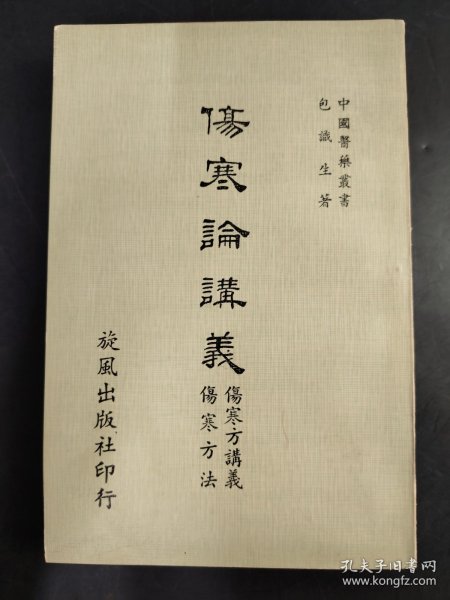 中國醫藥叢書
包識生著
傷寒論講義
傷寒方講義
傷寒方法
旋風出版社印行
孔夫子旧书网
www.kongfz.com